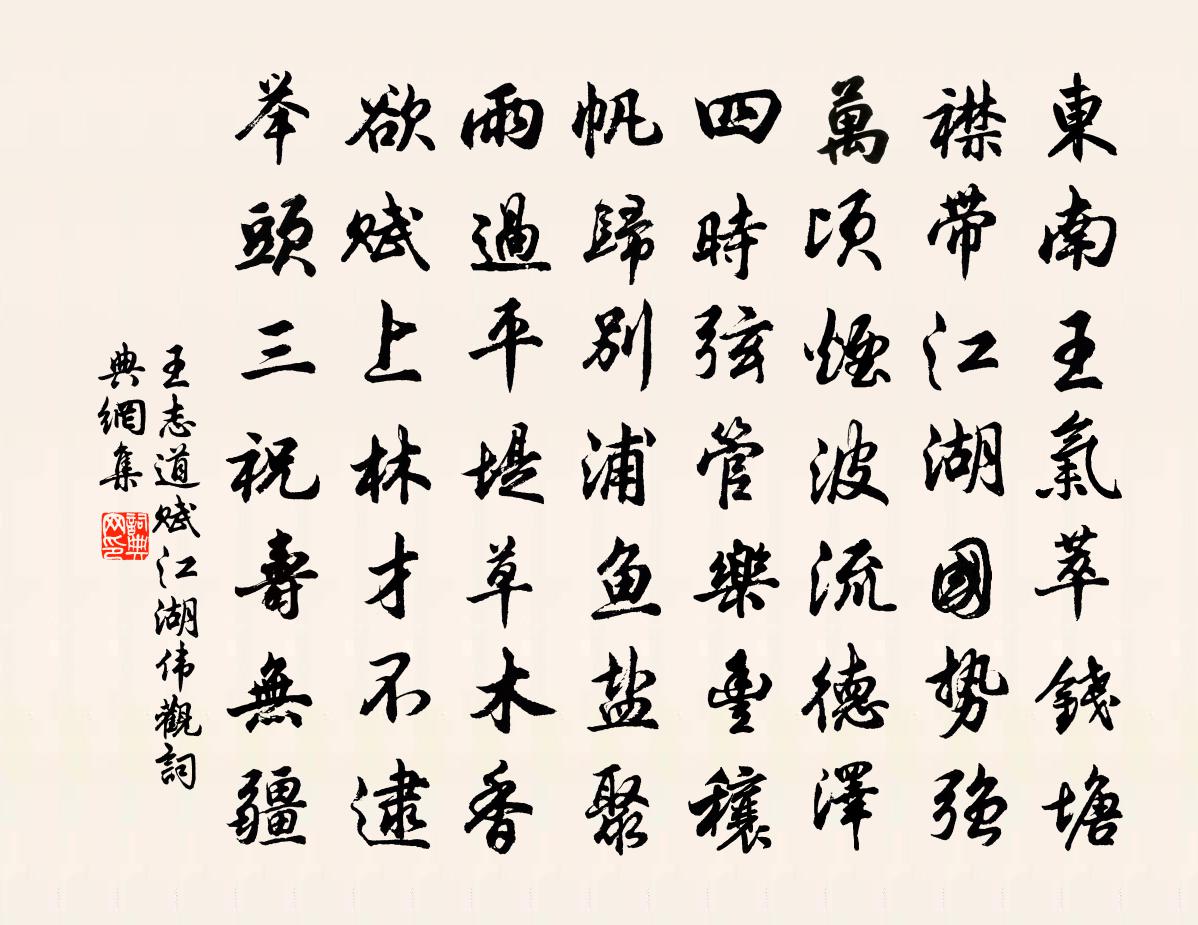 東南王氣萃錢塘
襟带江湖國勢强
萬頃煙波流德澤
四時弦管樂豊穰
帆歸別浦鱼盐聚
雨過平堤草木香
欲赋上林才不逮
举頭三祝壽無疆
王志道赋江湖伟觀詞
典網集
詞典网印